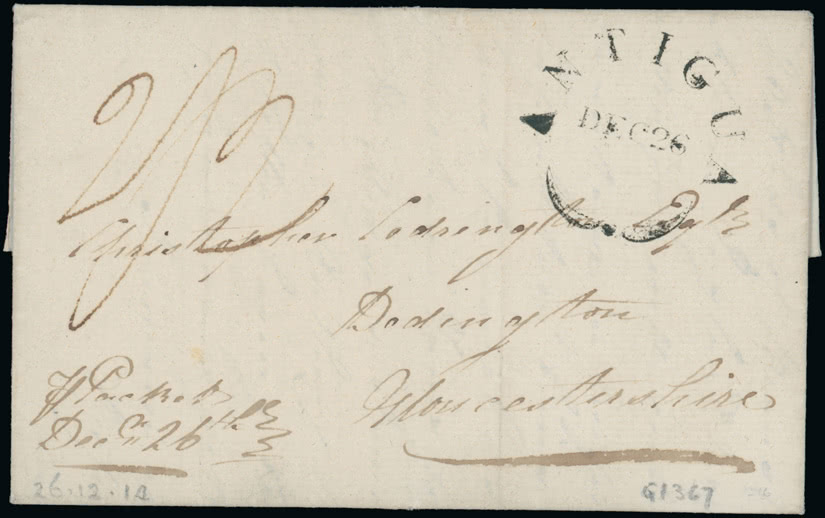 ANTIGUA
DEC 26
2/3
Christopher Codrington Esqr
Dodington
Gloucestershire
Packet
Decr 26th
26.12.12
G1367